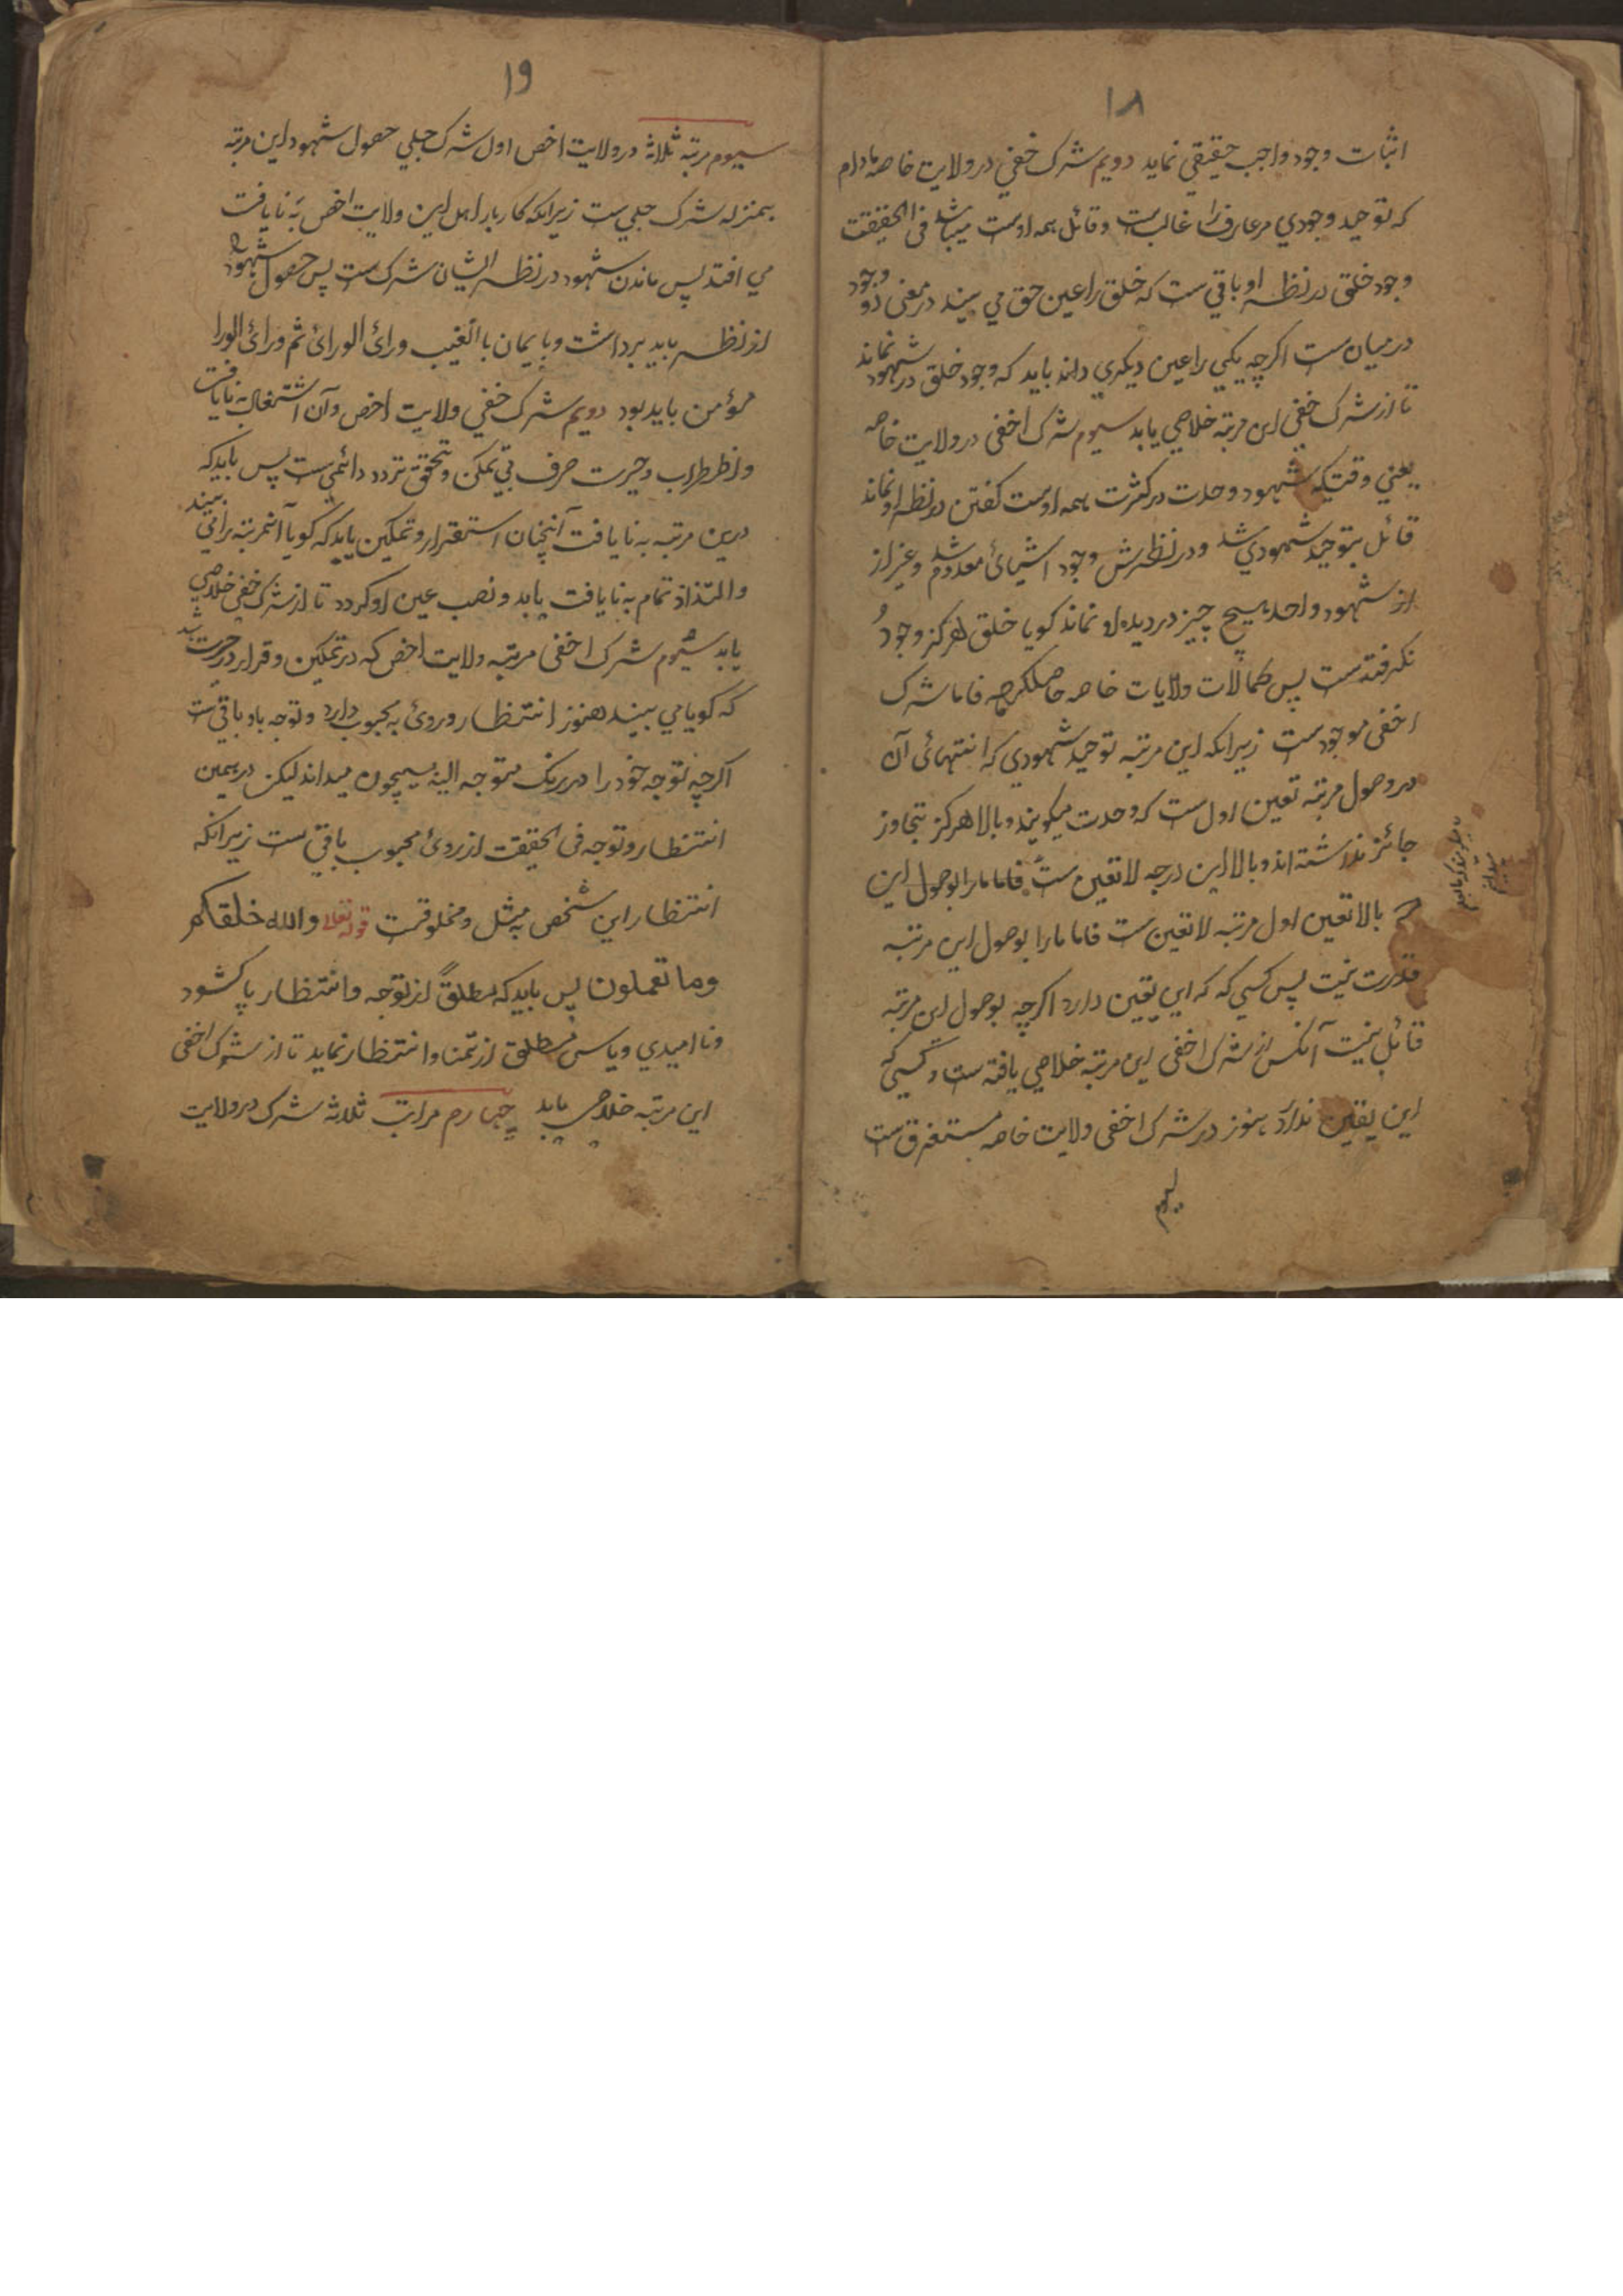 ۱۸
اثبات وجود واجب حقیقي نماید دویم شرک خفي در ولایت خاصه مادام
که توحید وجودي مر عارف را غالب ست و قائل همه اوست میباشد في الحقیقت
وجود خلق در نظر او باقي ست که خلق را عین حق مي بیند در معنی دو وجود
درمیان ست اکرچه یکي را عین دیکري داند باید که وجود خلق در شهود نماند
تا از شرک خفي این مرتبه خلاصي یابد سیوم شرک اخفی در ولایت خاصه
یعني وقتیکه شهود وحدت در کثرت همه اوست کفتن در نظر او نماند
قائل بتوحید شهودي شد و در نظرش وجود اشیائ معدوم شد و غیر از
از شهود واحد هیچ چیز در دیده او نماند کویا خلق هرکز وجود
نکرفته ست پس کمالات ولایات خاصه حاصل کرد فاما شرک
اخفی موجود ست زیرانکه این مرتبه توحید شهودي که انتهائی آن
در وصول مرتبه تعین اول ست که وحدت میکویند و بالا هرکز تجاوز
جائز نداشته اند و بالا این درجه لا تعین ست فاما ما را بوصول این
بالا تعین اول مرتبه لا تعین ست فاما ما را بوصول این مرتبه
قدرت نیت پس کسي که که این یقین دارد اکرچه بوصول این مرتبه
قائل نیت آنکس از شرک اخفی این مرتبه خلاصي یافته ست و کسي که
این یقین ندارد هنوز در شرک اخفی ولایت خاصه مستغرق ست
سیوم
۱۹
سیوم مرتبه ثلاثه در ولایت اخص اول شرک جلي حصول شهود این مرتبه
بمنزله شرک جلي ست زیرانکه کاربار اهل این ولایت اخص به نایافت
مي افتد پس ماندن شهود در نظر ایشان شرک ست پس حصول شهود
از نظر باید برداشت و بایمان با الغیب ورائ الورائ ثم ورائ الورا
مؤمن باید بود دویم شرک خفي ولایت اخص و آن اشتغال به نایافت
واظطراب وحیرت صرف بي تمکن وتحقق تردد دائمي ست پس باید که
درین مرتبه به نایافت آنچنان استقرار و تمکین یابد که کویا آنمرتبه را مي بیند
والتذاذ تمام به نایافت یابد و نصب عین او کردد تا از شرک خفي خلاصي
یابد سیوم شرک اخفی مرتبه ولایت اخص که در تمکین و قرار در حیرت رسید
که کویا مي بیند هنوز انتظار و روئ به محبوب دارد و توجه باو باقي ست
اکرچه توجه خود را در رنک متوجه الیه بیچون میداند لیکن در همین
انتظار و توجه في الحقیقت از روئ محبوب باقي ست زیرانکه
انتظار این شخص به مثل و مخلوقست قوله تعالی والله خلقکم
وما تعملون پس باید که مطلق از توجه وانتظار پاکشود
ونا امیدي و یاس مطلق از تمنا وانتظار نماید تا از شرک اخفی
این مرتبه خلاص یابد چهارم مراتب ثلاثه شرک در ولایت